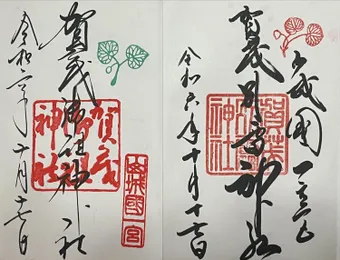 山城国一之宮
賀茂別雷神社
賀茂
別雷
神社
令和六年十月十七日
山城國一宮
賀茂御祖神社
賀茂
御祖
神社
令和六年十月十七日